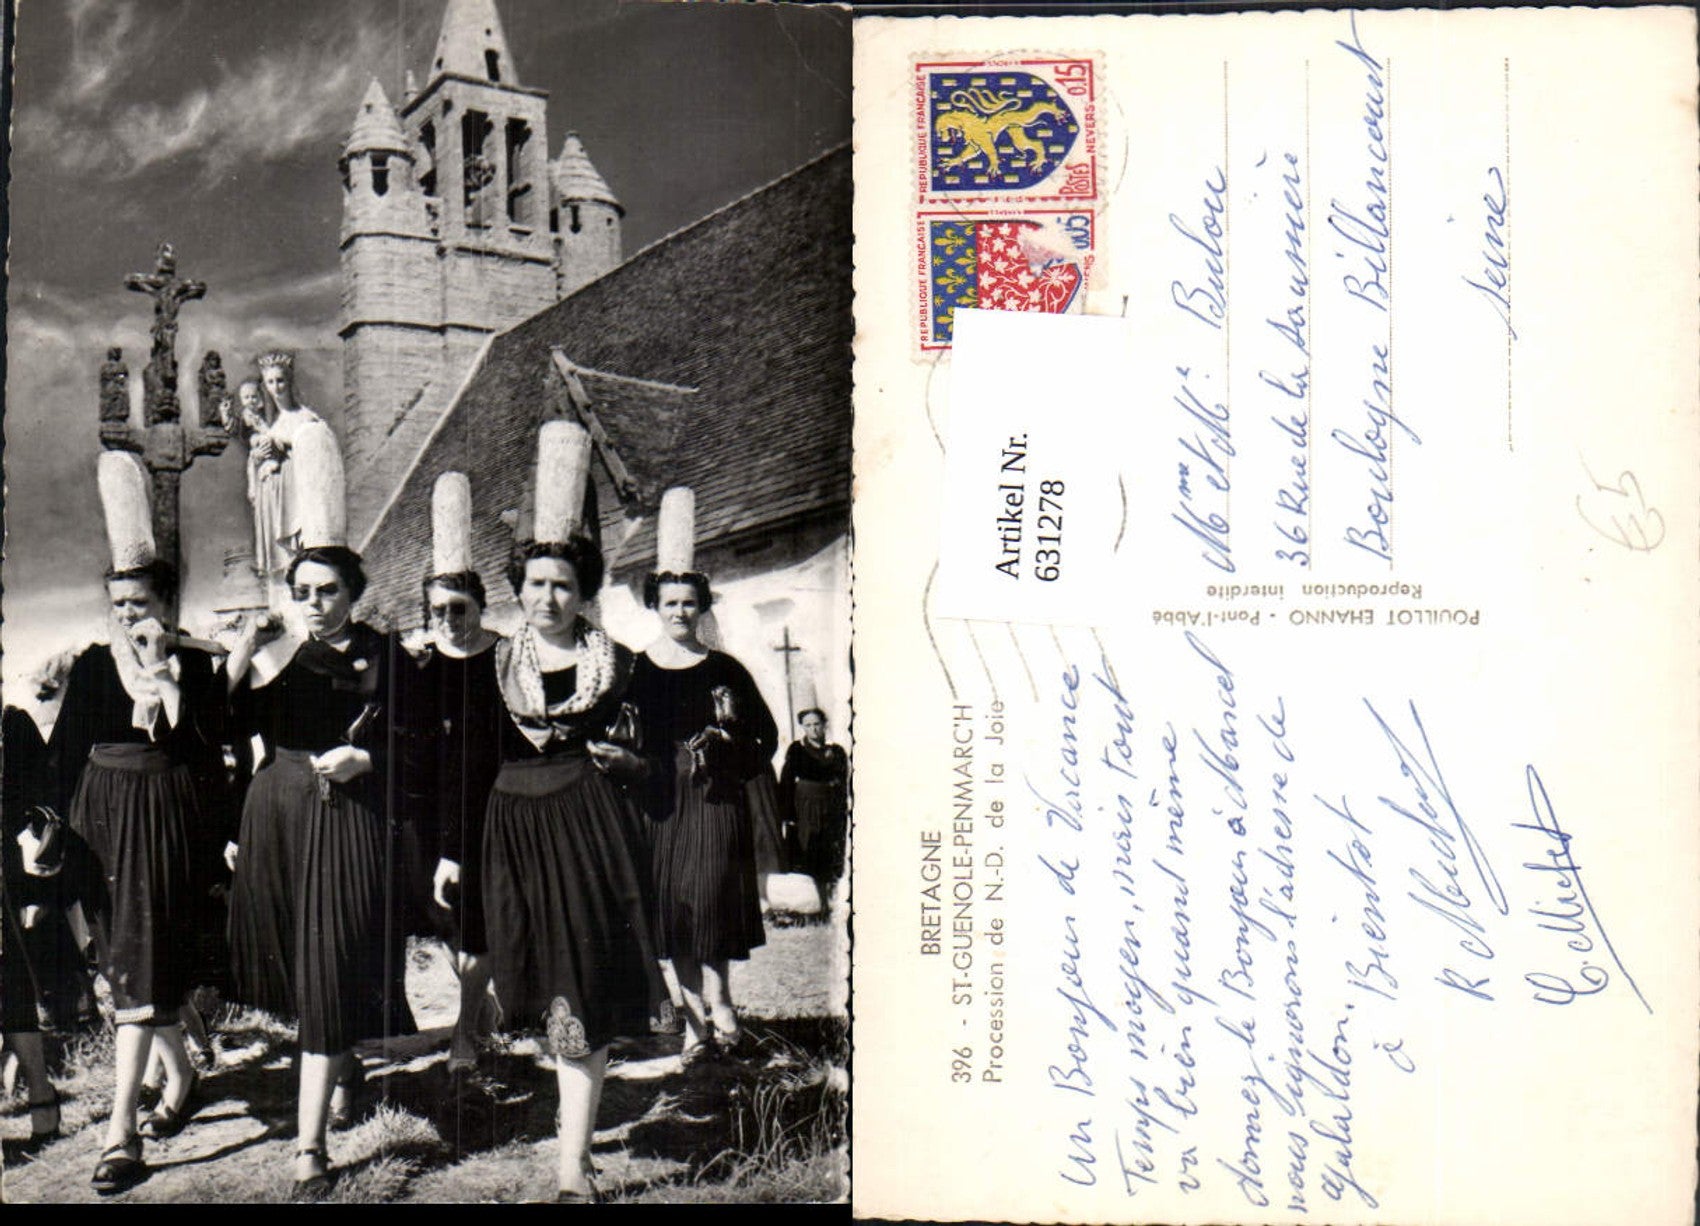 BRETAGNE
396 - ST-GUENOLE-PENMARC'H
Procession de N.-D. de la Joie
Un Bonjour de Vacance
Temps moyen, mais tout
va bien quand même
donnez le Bonjour à Marcel
nous l'adresse de
à Bientot
R
POUILLOT EHANNO - Pont-l'Abbé
Reproduction interdite
REPUBLIQUE FRANÇAISE
0.15
NEVERS
POSTES
REPUBLIQUE FRANÇAISE
0.05
Artikel Nr.
631278
Mme et Mlle Bulou
36 Rue de la
Boulogne Billancourt
Seine